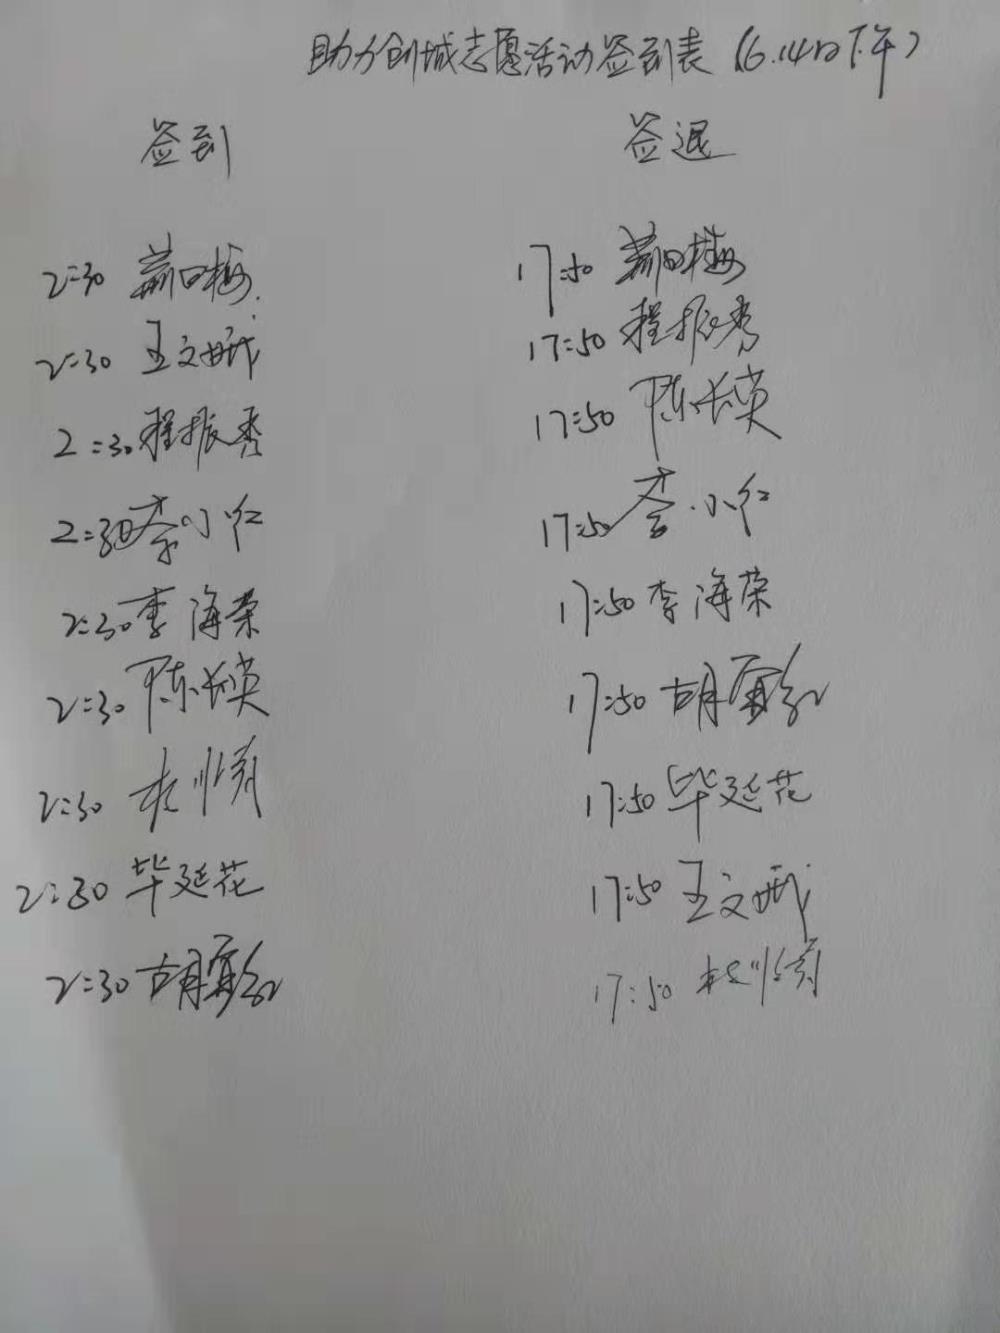 助力创城志愿活动签到表（6.14日下午）
签到 签退
2:30 17:50
2:30 王文娥 17:50 程振秀
2:30 程振秀 17:50 陈长英
2:30 李小红 17:50 李小红
2:30 李海荣 17:50 李海荣
2:30 陈长英 17:50 胡
2:30 17:50 毕廷花
2:30 毕廷花 17:50 王文娥
2:30 胡 17:50